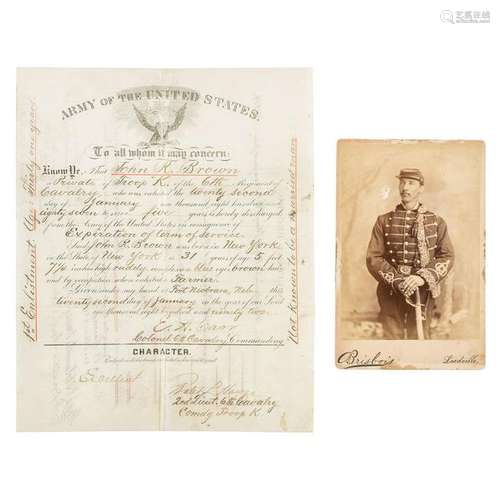 艺典在线
yidianart.com
ARMY OF THE UNITED STATES.
To all whom it may concern:
Know Ye, That John R. Brown
a Private of Troop K. of the 6th Regiment of
Cavalry who was enlisted the twenty second
day of January one thousand eight hundred and
eighty seven to serve five years is hereby discharged
from the Army of the United States in consequence of
Expiration of term of service
Said John R. Brown was born in New York
in the State of New York is 31 years of age 5 feet
7¾ inches high ruddy complexion Blue eyes brown hair
and by occupation when enlisted a Farmer
Given under my hand at Fort Niobrara, Neb. this
twenty second day of January in the year of our Lord
one thousand eight hundred and ninety two.
Colonel 6th Cavalry Commanding
CHARACTER.
Excellent
2nd Lieut. 6th Cavalry
Comdg Troop K
1st Enlistment Age: Thirty one years
Not known to be a married man
Brisbois
Leadville,